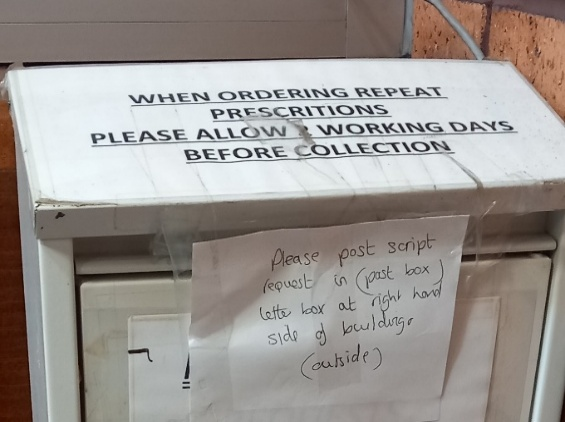 WHEN ORDERING REPEAT
PRESCRITIONS
PLEASE ALLOW WORKING DAYS
BEFORE COLLECTION
Please post script
request in (post box)
lette box at right hand
side of building.
(outside)